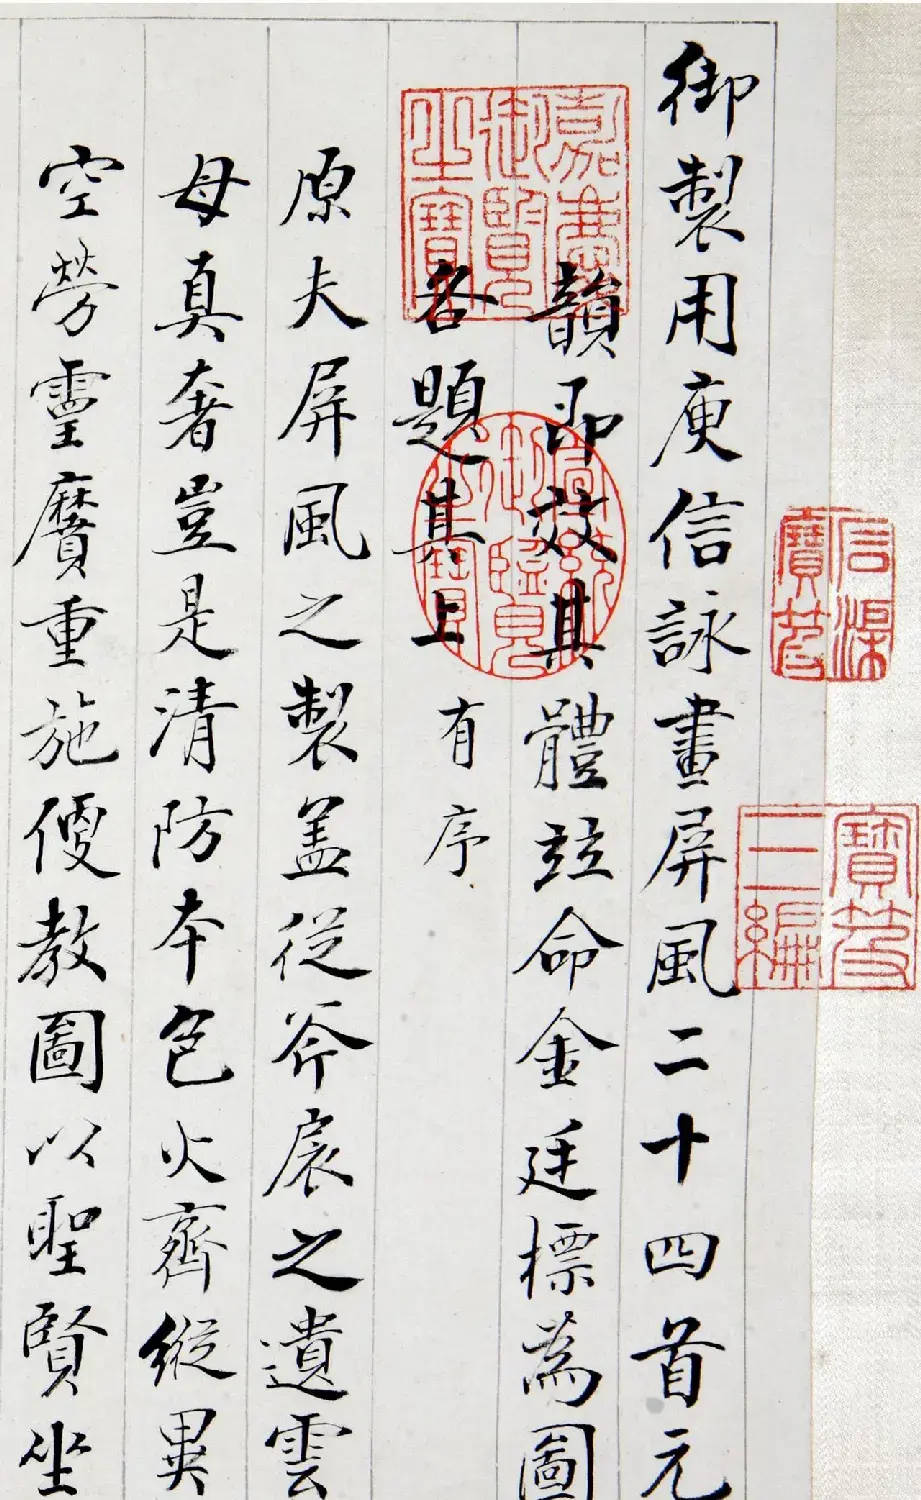 御製用庾信詠畫屏風二十四首元
韻即效其體竝命金廷標為圖
各題其上 有序
原夫屏風之製盖從斧扆之遺雲
母真奢豈是清防本色火齊縱異
空勞靈賡重施便教圖以聖賢坐
嘉慶御覽之寶
宣統御覽之寶
石渠寶笈
寶笈三編